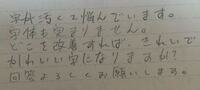 字が汚くて悩んでいます。
字体も定まりません。
どこを改善すれば、きれいで
かわいい字になりますか?
回答よろしくお願いします。